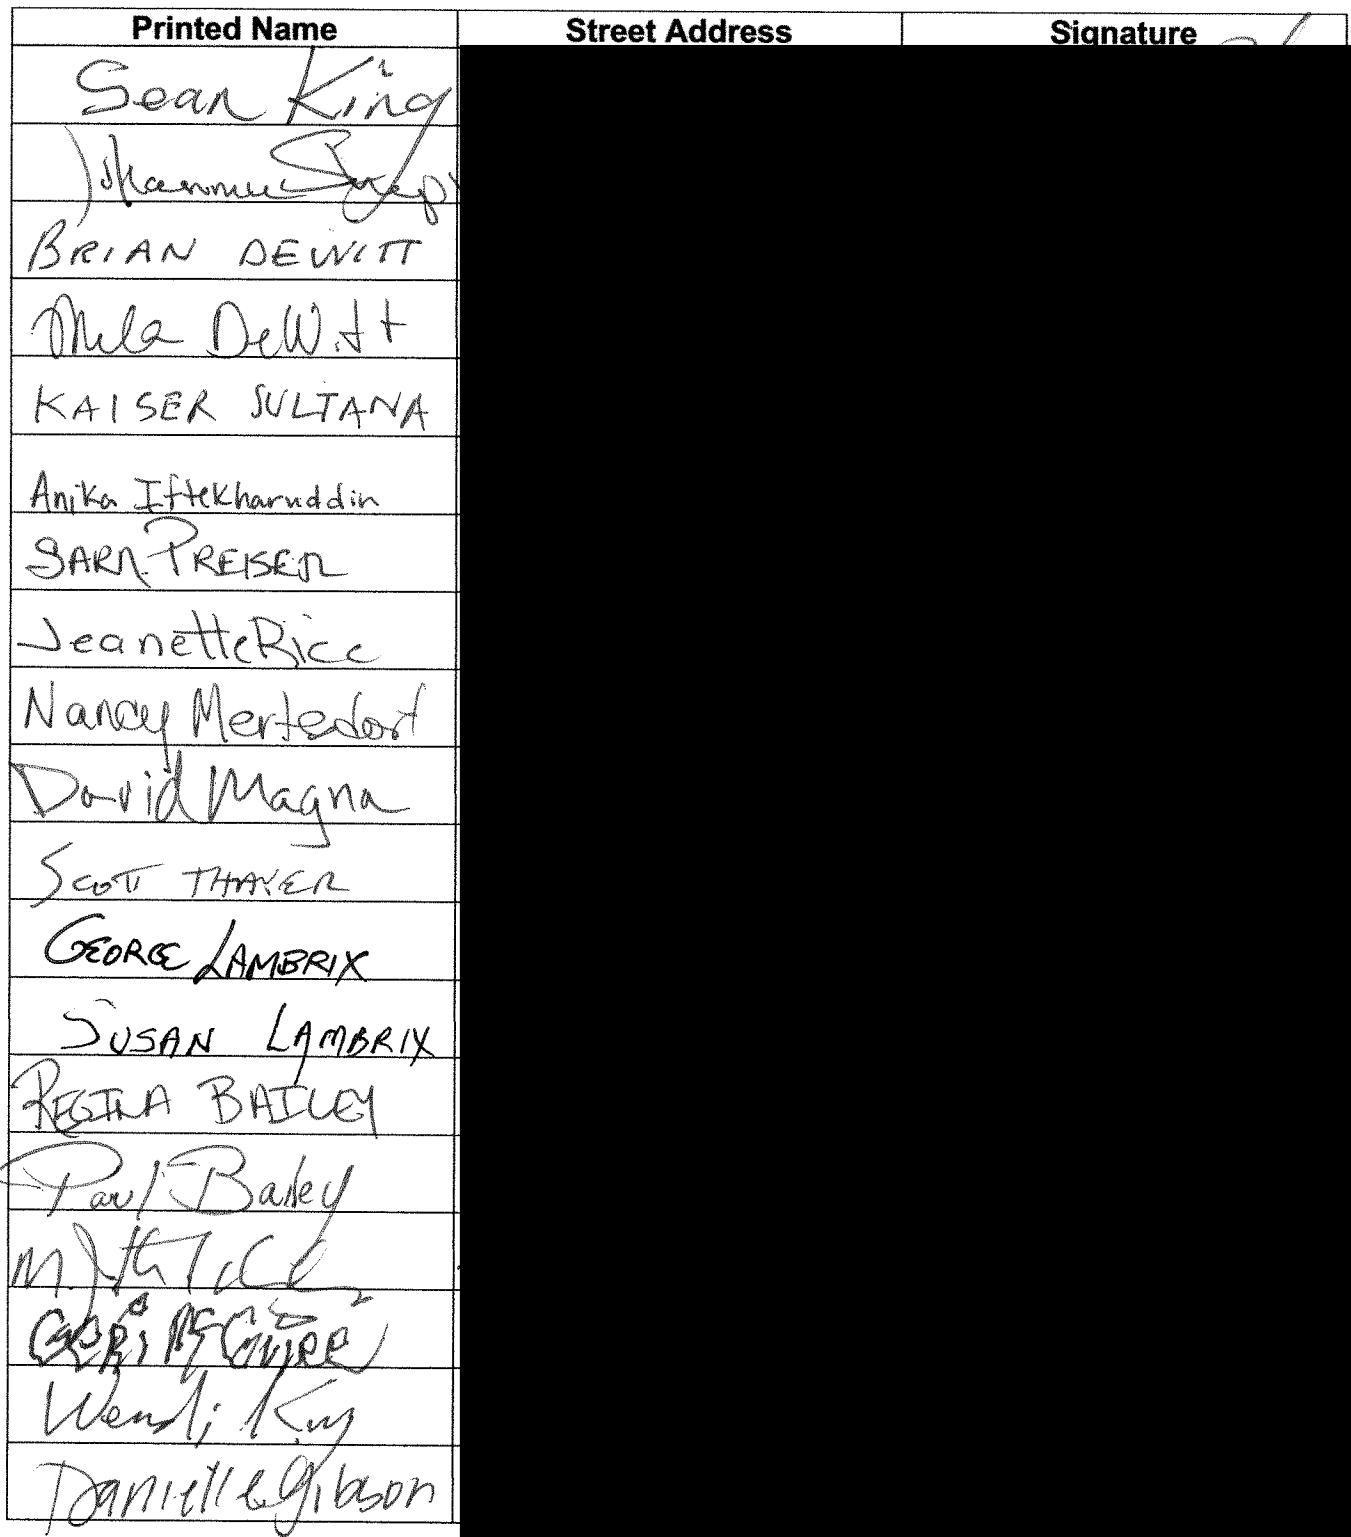 Printed Name Street Address Signature
Sean King
BRIAN DEWITT
Mila DeWitt
KAISER SULTANA
Anika Iftekharuddin
SARA PREISER
Jeanette Rice
Nancy Mertesdorf
David Magna
SCOTT THAYER
GEORGE LAMBRIX
SUSAN LAMBRIX
REGINA BAILEY
Paul Bailey
M.
GERI McGuiRE
Wendi King
Danielle Gibson